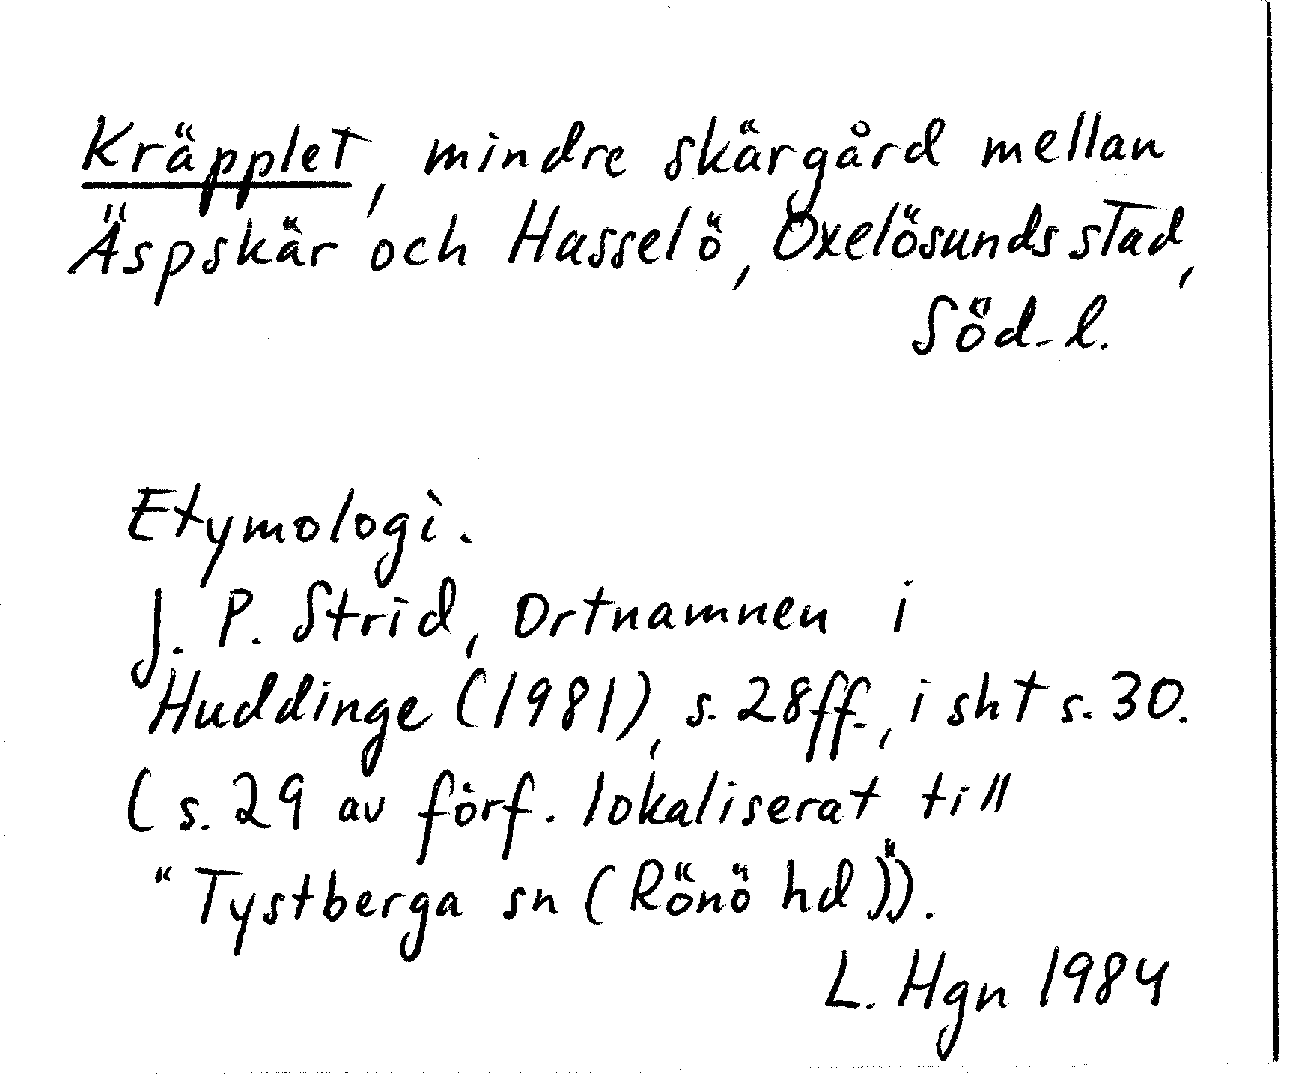 Kräpplet, mindre skärgård mellan
Äspskär och Hasselö, Oxelösunds stad,
Söd-l.
Etymologi.
J. P. Strid, Ortnamnen i
Huddinge (1981), s. 28ff., i sht s. 30.
(s. 29 av förf. lokaliserat till
"Tystberga sn (Rönö hd)").
L. Hgn 1984